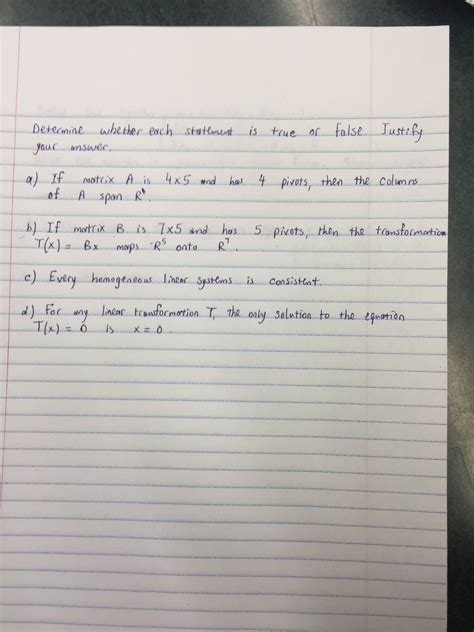 Determine whether each statement is true or false. Justify
your answer.
a) If matrix A is 4x5 and has 4 pivots, then the columns
of A span R⁴.
b) If matrix B is 7x5 and has 5 pivots, then the transformation
T(x) = Bx maps R⁵ onto R⁷.
c) Every homogeneous linear systems is consistent.
d) For any linear transformation T, the only solution to the equation
T(x) = 0 is x = 0.